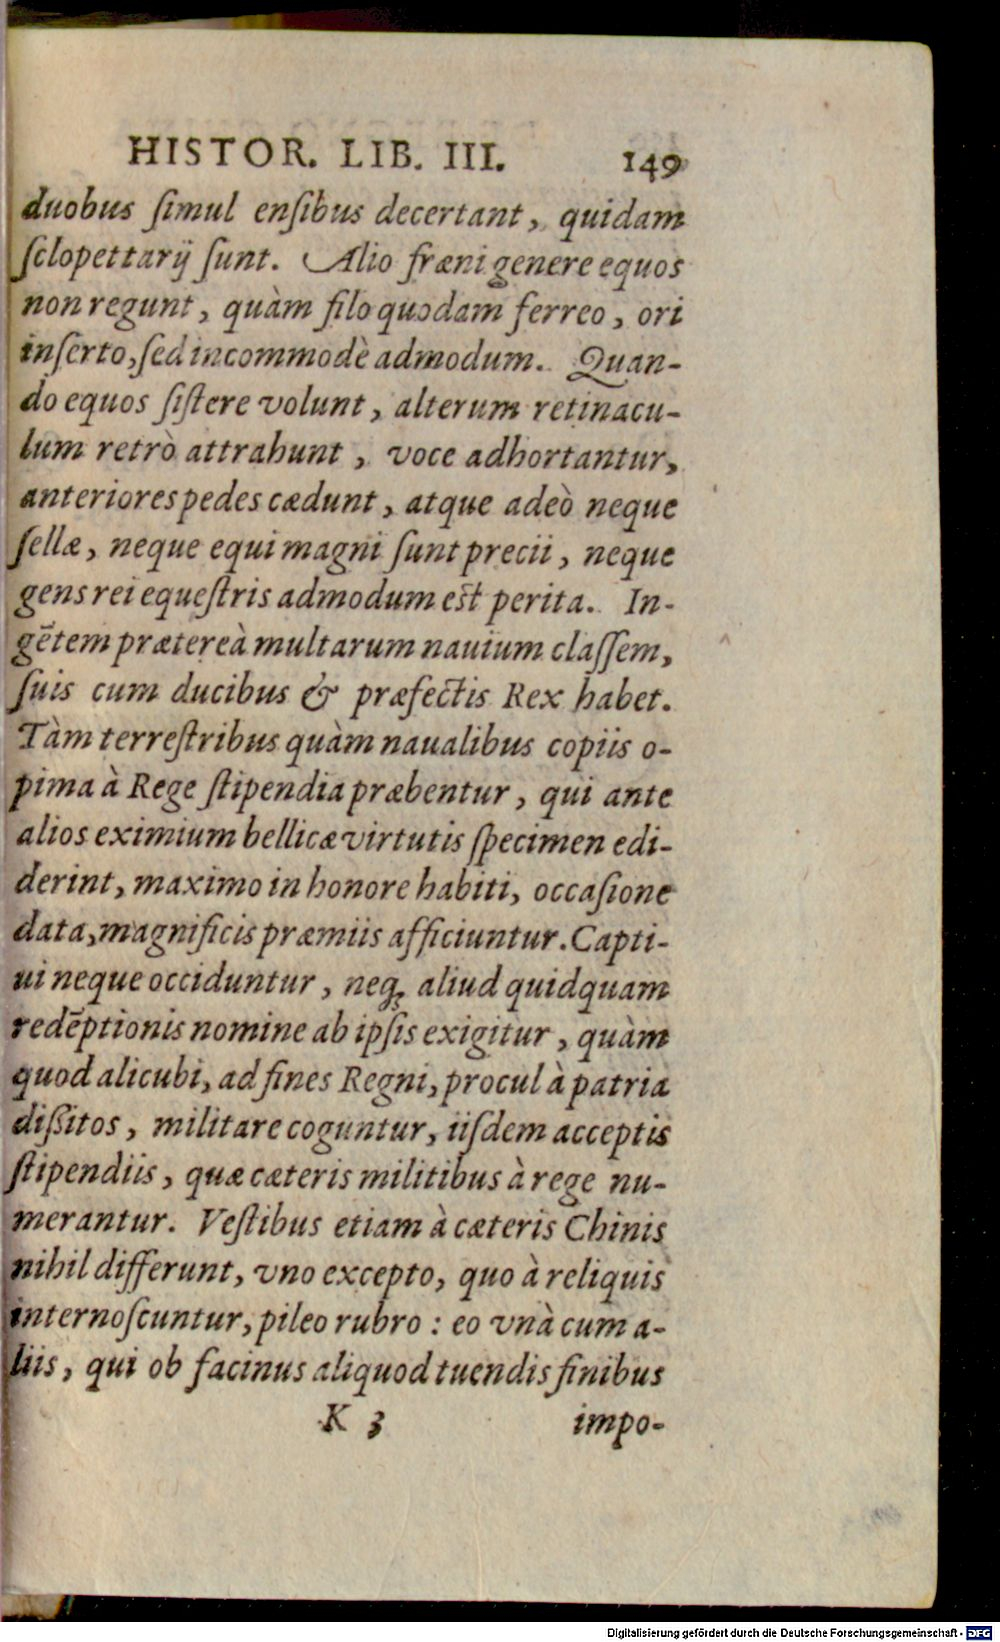 HISTOR. LIB. III. 149
duobus ſimul enſibus decertant, quidam
ſclopettarij ſunt. Alio fræni genere equos
non regunt, quàm filo quodam ferreo, ori
inſerto, ſed incommodè admodum. Quan-
do equos ſiſtere volunt, alterum retinacu-
lum retrò attrahunt, voce adhortantur,
anteriores pedes cædunt, atque adeò neque
ſellæ, neque equi magni ſunt precii, neque
gens rei equeſtris admodum est perita. In-
gẽtem prætereà multarum nauium claſſem,
ſuis cum ducibus & præfectis Rex habet.
Tàm terreſtribus quàm naualibus copiis o-
pima à Rege ſtipendia præbentur, qui ante
alios eximium bellicæ virtutis ſpecimen edi-
derint, maximo in honore habiti, occaſione
data, magnificis præmiis afficiuntur. Capti-
ui neque occiduntur, neq; aliud quidquam
redẽptionis nomine ab ipſis exigitur, quàm
quod alicubi, ad fines Regni, procul à patria
diſsitos, militare coguntur, iiſdem acceptis
ſtipendiis, quæ cæteris militibus à rege nu-
merantur. Veſtibus etiam à cæteris Chinis
nihil differunt, vno excepto, quo à reliquis
internoſcuntur, pileo rubro: eo vnà cum a-
liis, qui ob facinus aliquod tuendis finibus
K 3 impo-
Digitalisierung gefördert durch die Deutsche Forschungsgemeinschaft - DFG